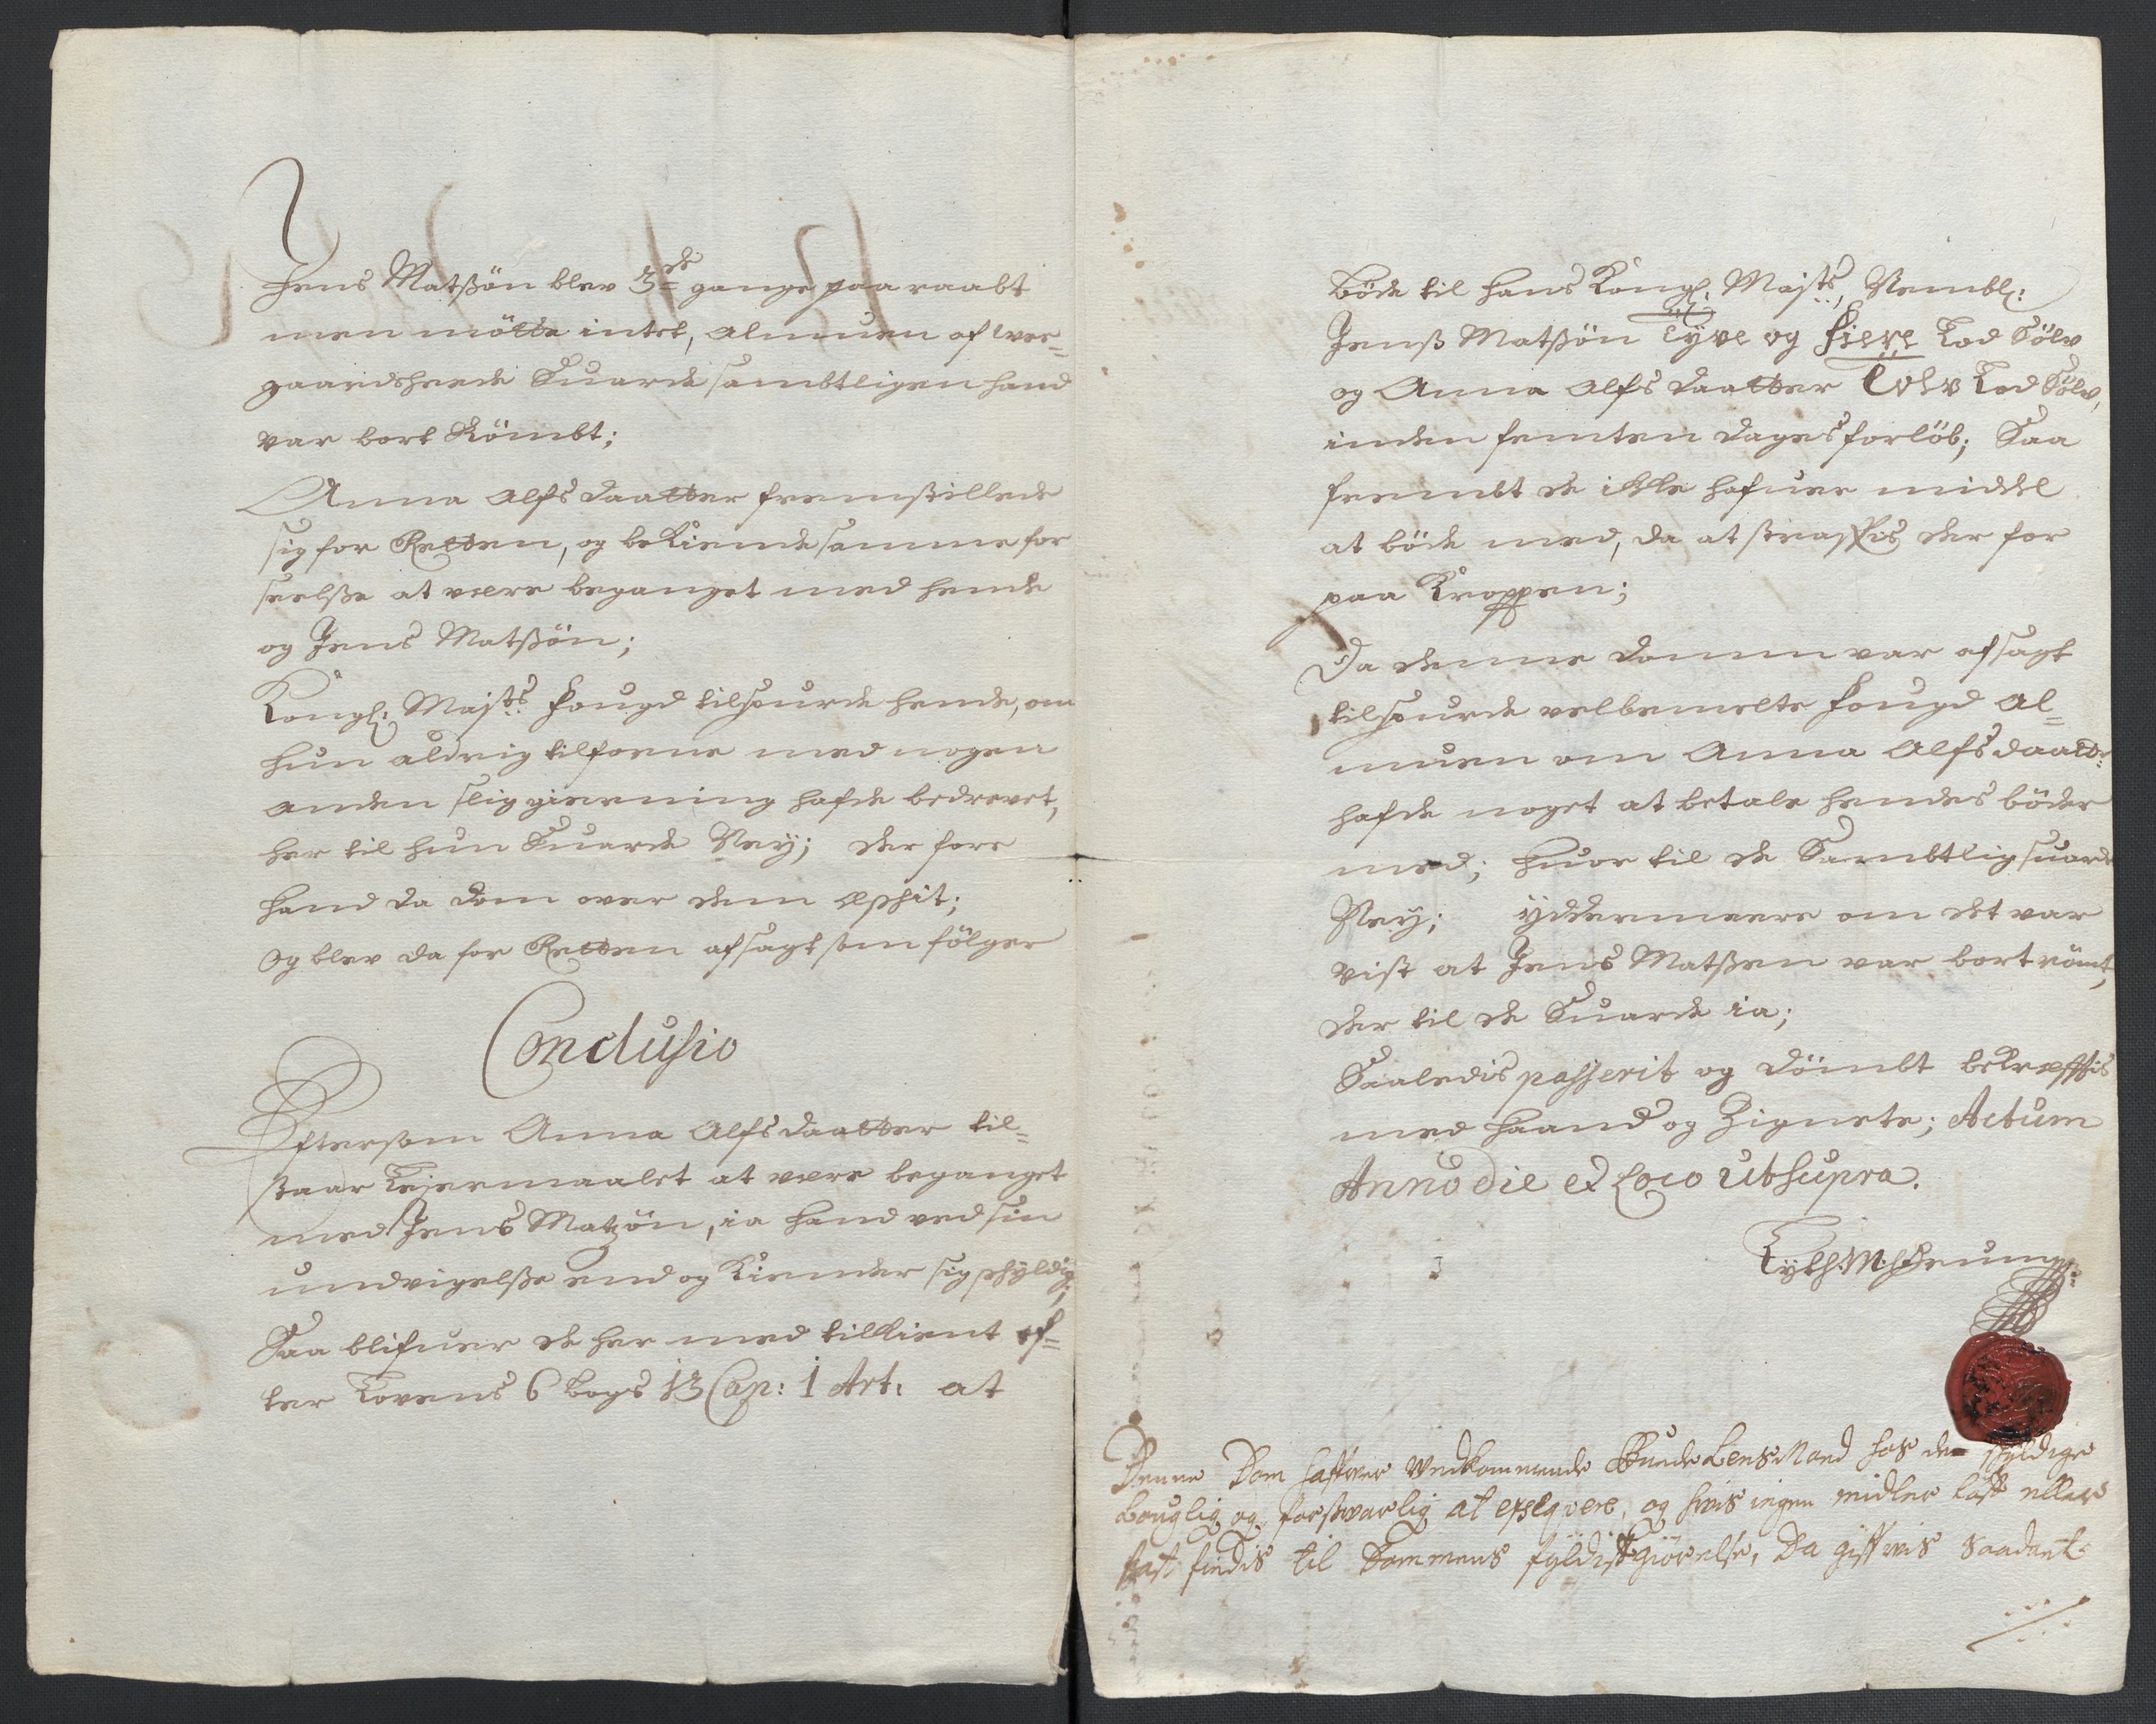 Jens Matßön blev 3de gange paaraabt
men mötte intet, almuen af wer=
gaardsherde Suarde sambtligen hand
var bort Römbt;
Anna Alfs daatter fremstillede
sig for Retten, og bekiende samme for
seelße at være beganget med hende
og Jens Matßön;
Kongl: Majts: fougd tilspurde hende, om
hun aldrig tilforne med nogen
anden slig gierning hafde bedrevet,
her til hun Suarde Ney; der fore
hand da dom over dem æschit;
Og blev da for Retten afsagt som fölger
Conclusio
Eftersom Anna Alfsdaatter til=
staar Leiermaalet at være beganget
med Jens Matzön, ia hand ved sin
undvigelße end og kiender sig schyldig;
Saa blifuer de her med tilkient ef=
ter Lovens 6 bogs 13 Cap: 1 Art: at
böde til hans Kongl: Majts, Nembl:
Jenß Matßön Tyve og fiere Lod Sölv
og Anna Alfs daatter Tolv Lod Sölv,
inden femten dages forlöb; Saa
frembt de ikke hafuer middel
at böde med, da at straffis der for
paa Kroppen;
Da denne domm var afsagt
tilspurde velbemelte fougd al=
muen om Anna Alfsdaatr:
hafde noget at betale hendes böder
med; huor til de Sambtlig suarde
Ney; ÿddermeere om det var
vist at Jens Matßen var bortrömt,
der til de Suarde ia;
Saaledis passerit og dömbt bekræfftis
med haand og Zignete; Actum
Anno die et Loco ut supra.
Denne Dom haffver Vedkommende Bunde LensMand hos de skÿldige
Louglig og forswarlig at exseqvere, og hvis ingen midler löst eller
fast findis til Dommens fyldistgiörelse, Da giffvis Saadant